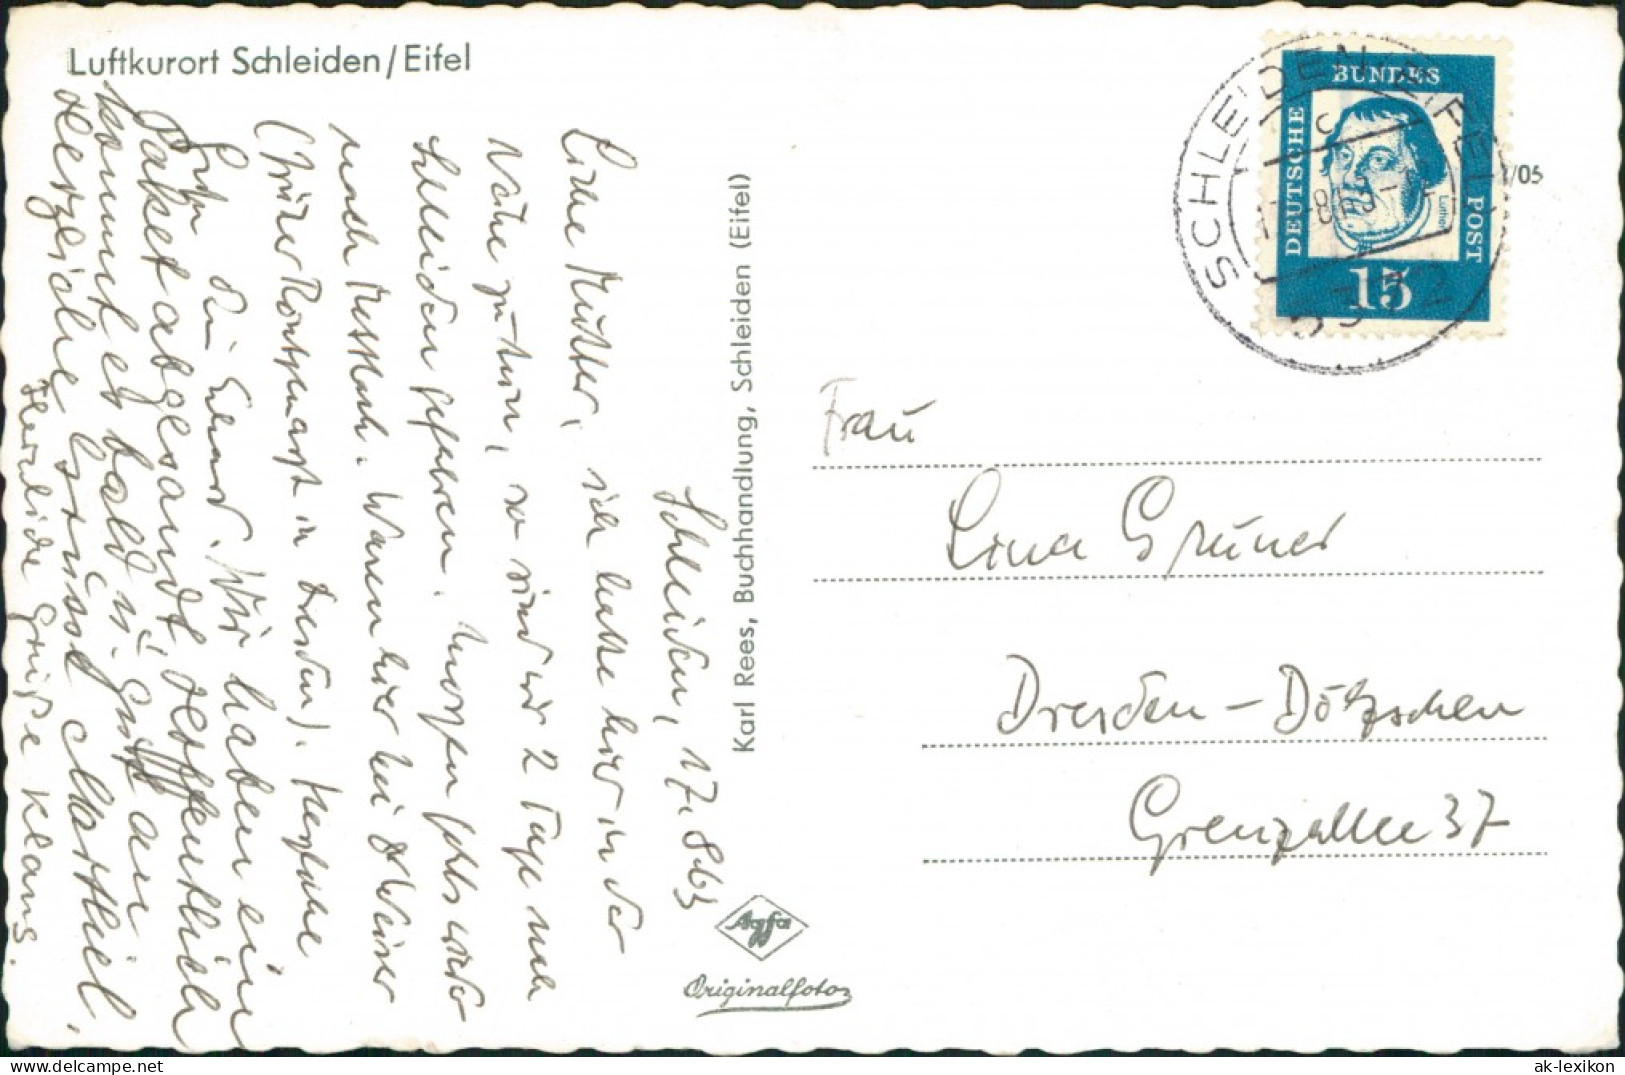 Luftkurort Schleiden/Eifel
Schleiden, 17.8.63
Liebe Mutter, ich hatte hier in der
Nähe zu tun, so sind wir 2 Tage nach
Schleiden gefahren. Morgen geht's wieder
nach
Waren hier bei
(früher in Dresden). Herzliche
Grüße Dein Eduard. Wir haben ein
Paket abgesandt, hoffentlich
kommt es bald u. gut an.
Herzliche Grüsse
Herzliche Grüße Klaus.
Karl Rees, Buchhandlung, Schleiden (Eifel)
Agfa
Originalfoto
DEUTSCHE
BUNDES
POST
Luther
15
SCHLEIDEN EIFEL
c
/05
Frau
Lina Gruner
Dresden-Dölzschen
Grenzallee 37
ak-lexikon